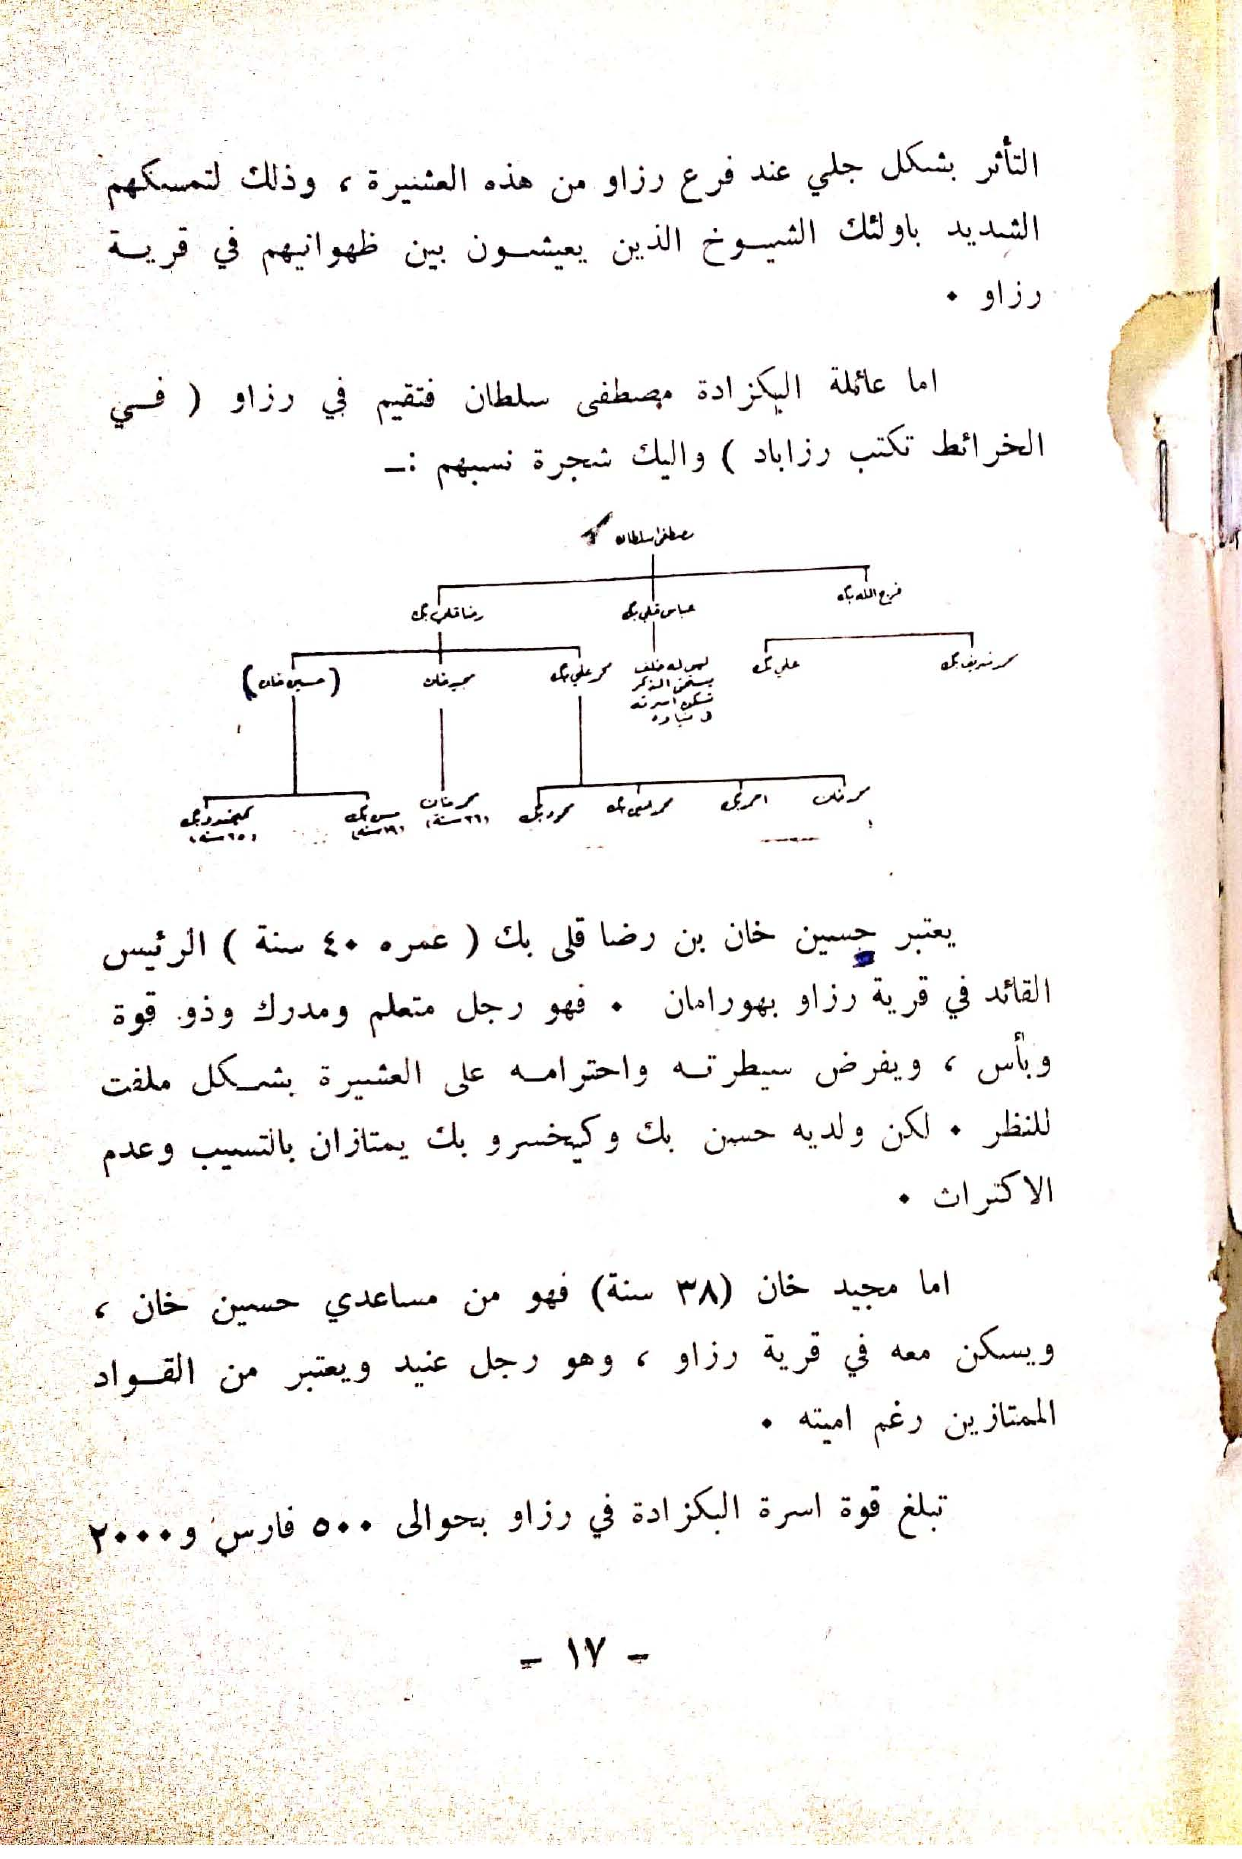 التأثر بشكل جلي عند فرع رزاو من هذه العشيرة ، وذلك لتمسكهم
الشديد باولئك الشيوخ الذين يعيشون بين ظهوانيهم في قرية
رزاو ٠
اما عائلة البكزادة مصطفى سلطان فتقيم في رزاو ( في
الخرائط تكتب رزاباد ) واليك شجرة نسبهم :ـ
مصطفى سلطان
فرج الله بك
عباس قلي بك
رضا قلي بك
محمد شريف بك
علي بك
ليس له خلف
يستحق الذكر
تسكن اسرته
محمد علي بك
مجيد خان
(حسين خان)
محمد خان
احمد بك
محمود بك
محمد خان
(٢٢ سنة)
حسن بك
(١٩ سنة)
كيخسرو بك
يعتبر حسين خان بن رضا قلى بك ( عمره ٤٠ سنة ) الرئيس
القائد في قرية رزاو بهورامان ٠ فهو رجل متعلم ومدرك وذو قوة
وبأس ، ويفرض سيطرته واحترامه على العشيرة بشكل ملفت
للنظر ٠ لكن ولديه حسن بك وكيخسرو بك يمتازان بالتسيب وعدم
الاكتراث ٠
اما مجيد خان (٣٨ سنة) فهو من مساعدي حسين خان ،
ويسكن معه في قرية رزاو ، وهو رجل عنيد ويعتبر من القواد
الممتازين رغم اميته ٠
تبلغ قوة اسرة البكزادة في رزاو بحوالى ٥٠٠ فارس و٢٠٠٠
- ١٧ -